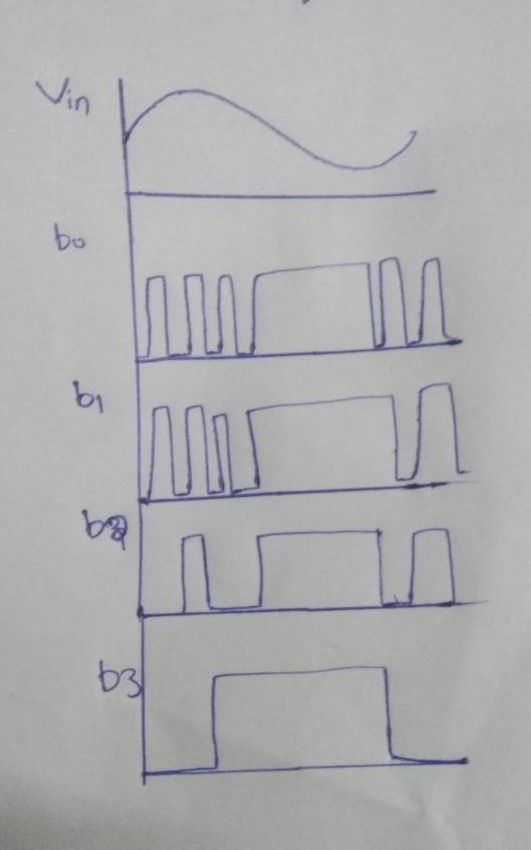 Vin
b0
b1
b2
b3